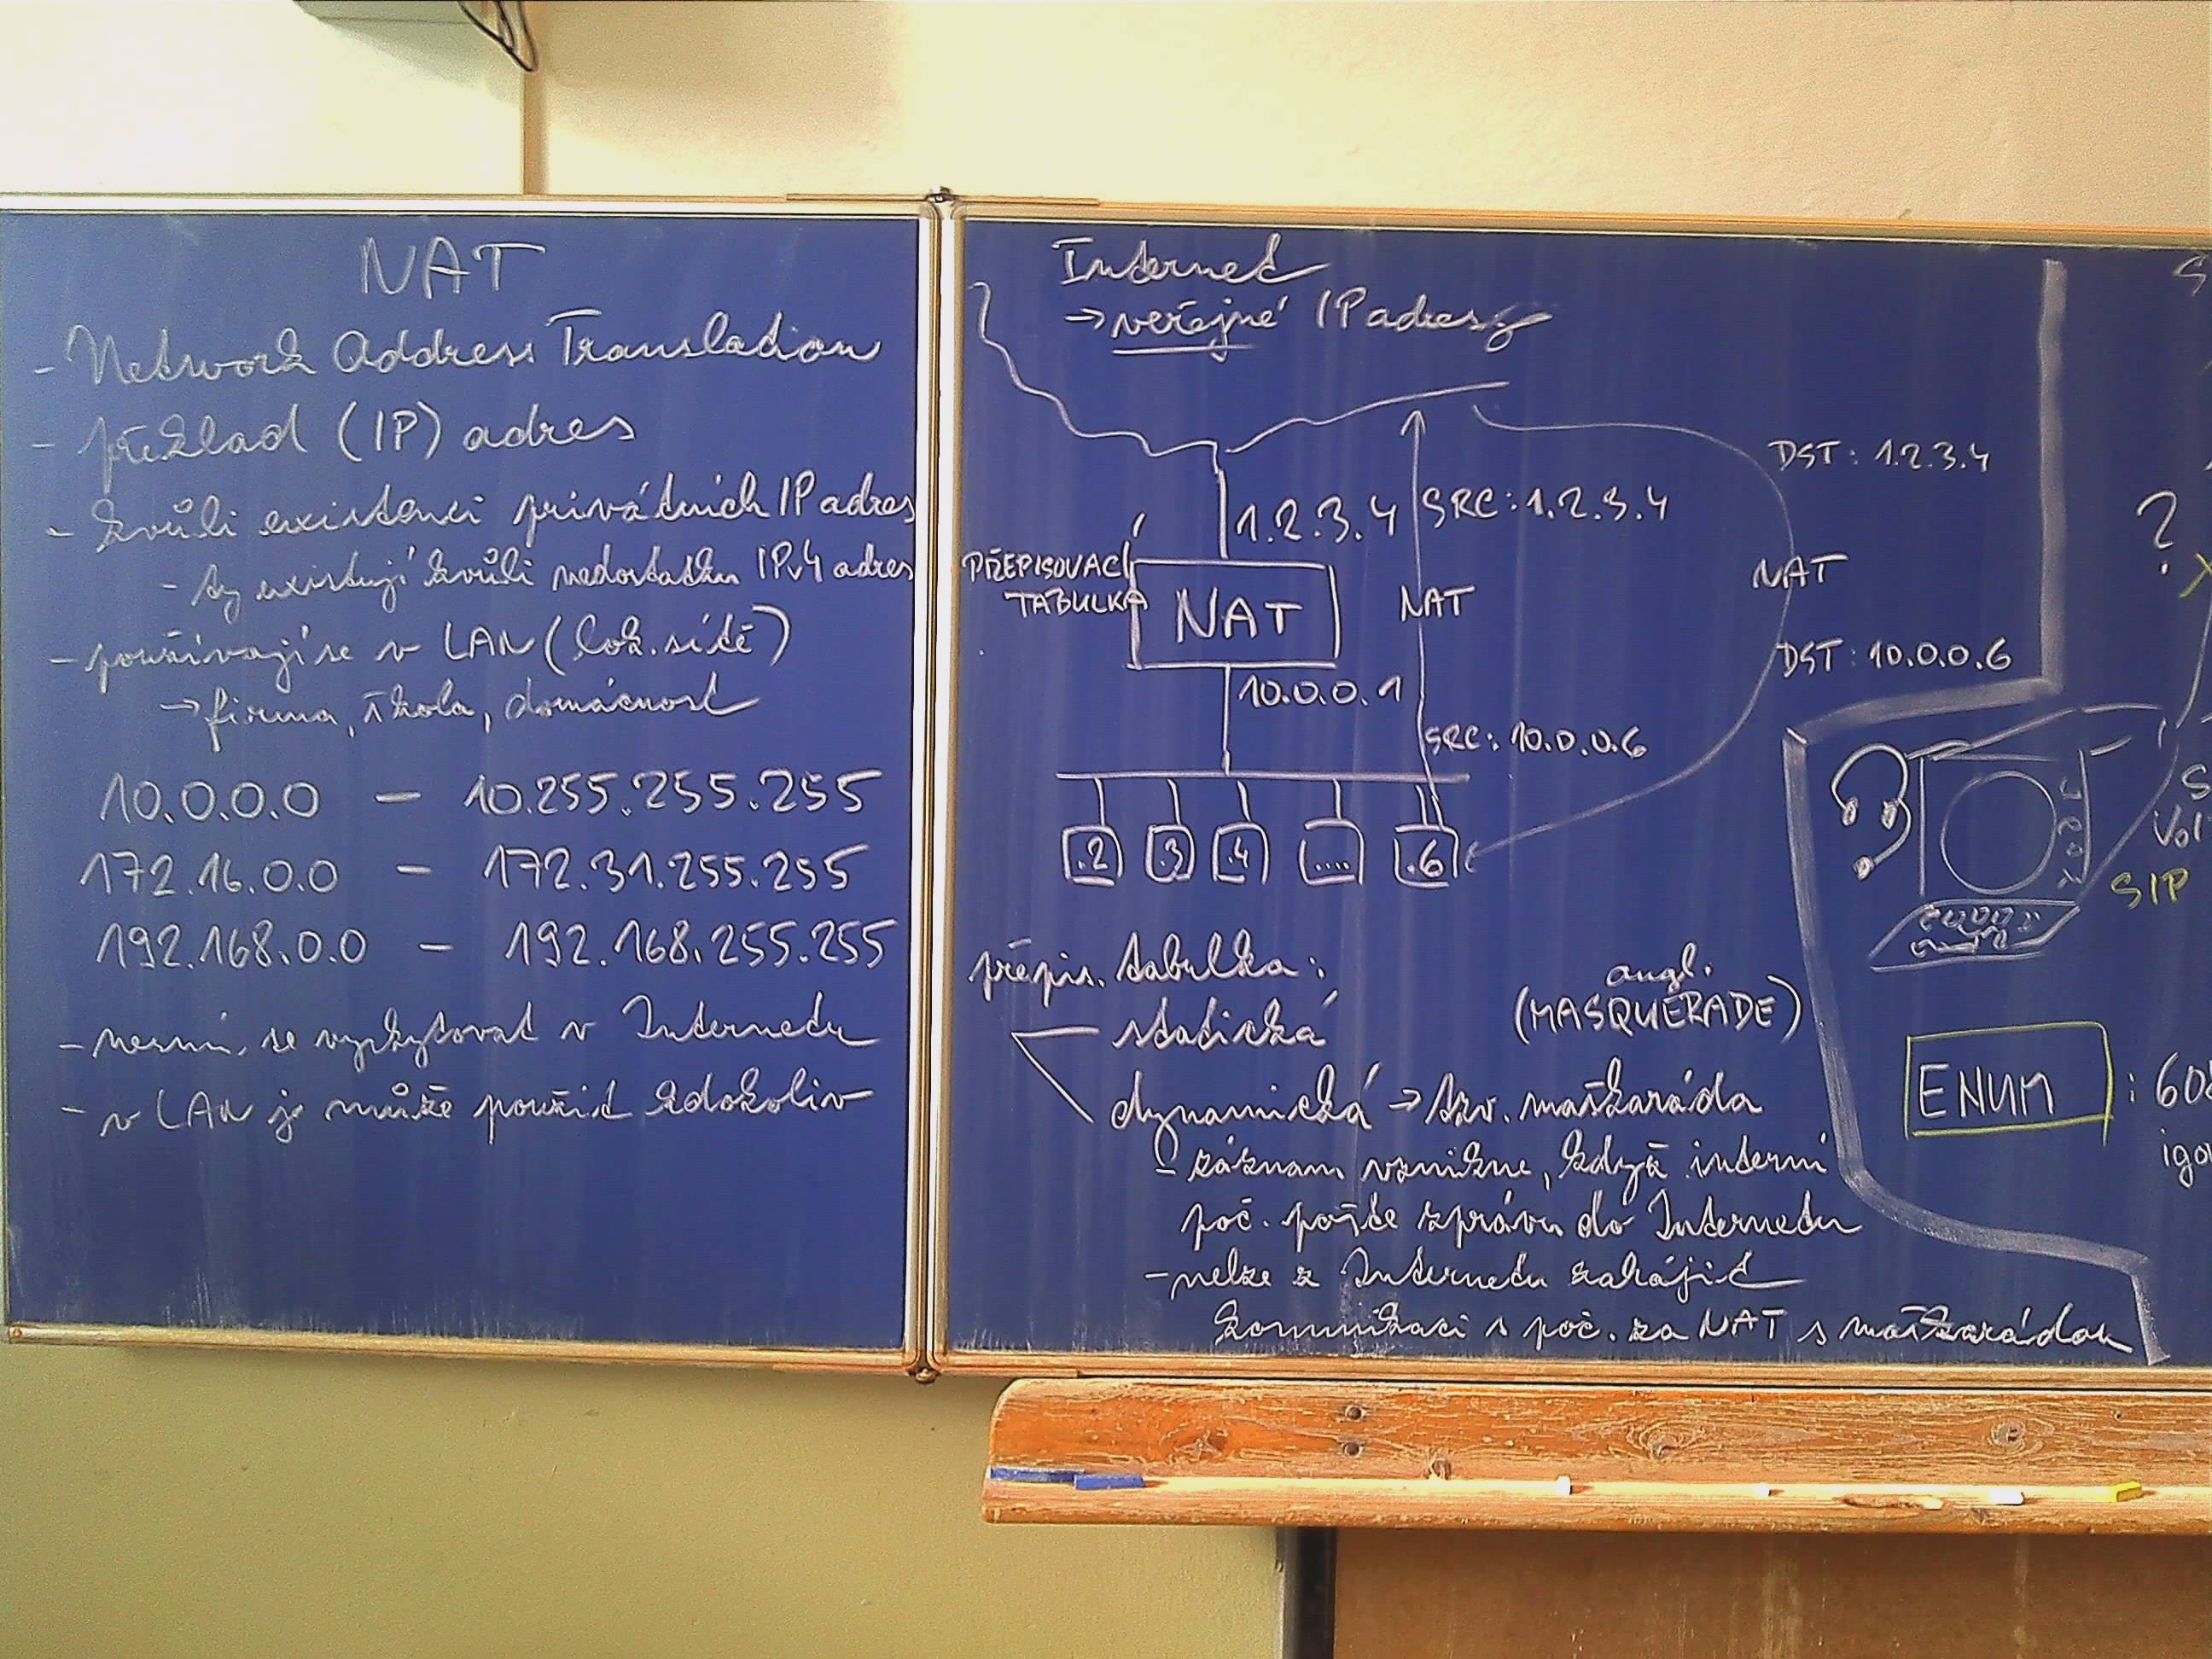 NAT
- Network Address Translation
- překlad (IP) adres
- kvůli existenci privátních IP adres
- ty existují kvůli nedostatku IPv4 adres
- používají se v LAN (lok. sítě)
→ firma, škola, domácnost
10.0.0.0 - 10.255.255.255
172.16.0.0 - 172.31.255.255
192.168.0.0 - 192.168.255.255
- nesmí se vyskytovat v Internetu
- v LAN je může použít kdokoliv
Internet
→ veřejné IP adresy
1.2.3.4
SRC: 1.2.3.4
DST: 1.2.3.4
PŘEPISOVACÍ
TABULKA
NAT
NAT
NAT
10.0.0.1
SRC: 10.0.0.6
DST: 10.0.0.6
.2 .3 .4 .... .6
přepis. tabulka:
statická
angl.
(MASQUERADE)
dynamická → tzv. maškaráda
- záznam vznikne, když interní
poč. pošle zprávu do Internetu
- nelze z Internetu zahájit
komunikaci s poč. za NAT s maškarádou
?
SIP
ENUM : 608
igo